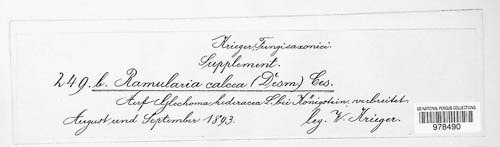 Krieger, Fungi saxonici.
Supplement.
249. b. Ramularia calcea (Desm) Ces.
Auf Glechoma hederacea L. bei Königstein, verbreitet.
August und September 1893. leg. W. Krieger.
US NATIONAL FUNGUS COLLECTIONS
978490